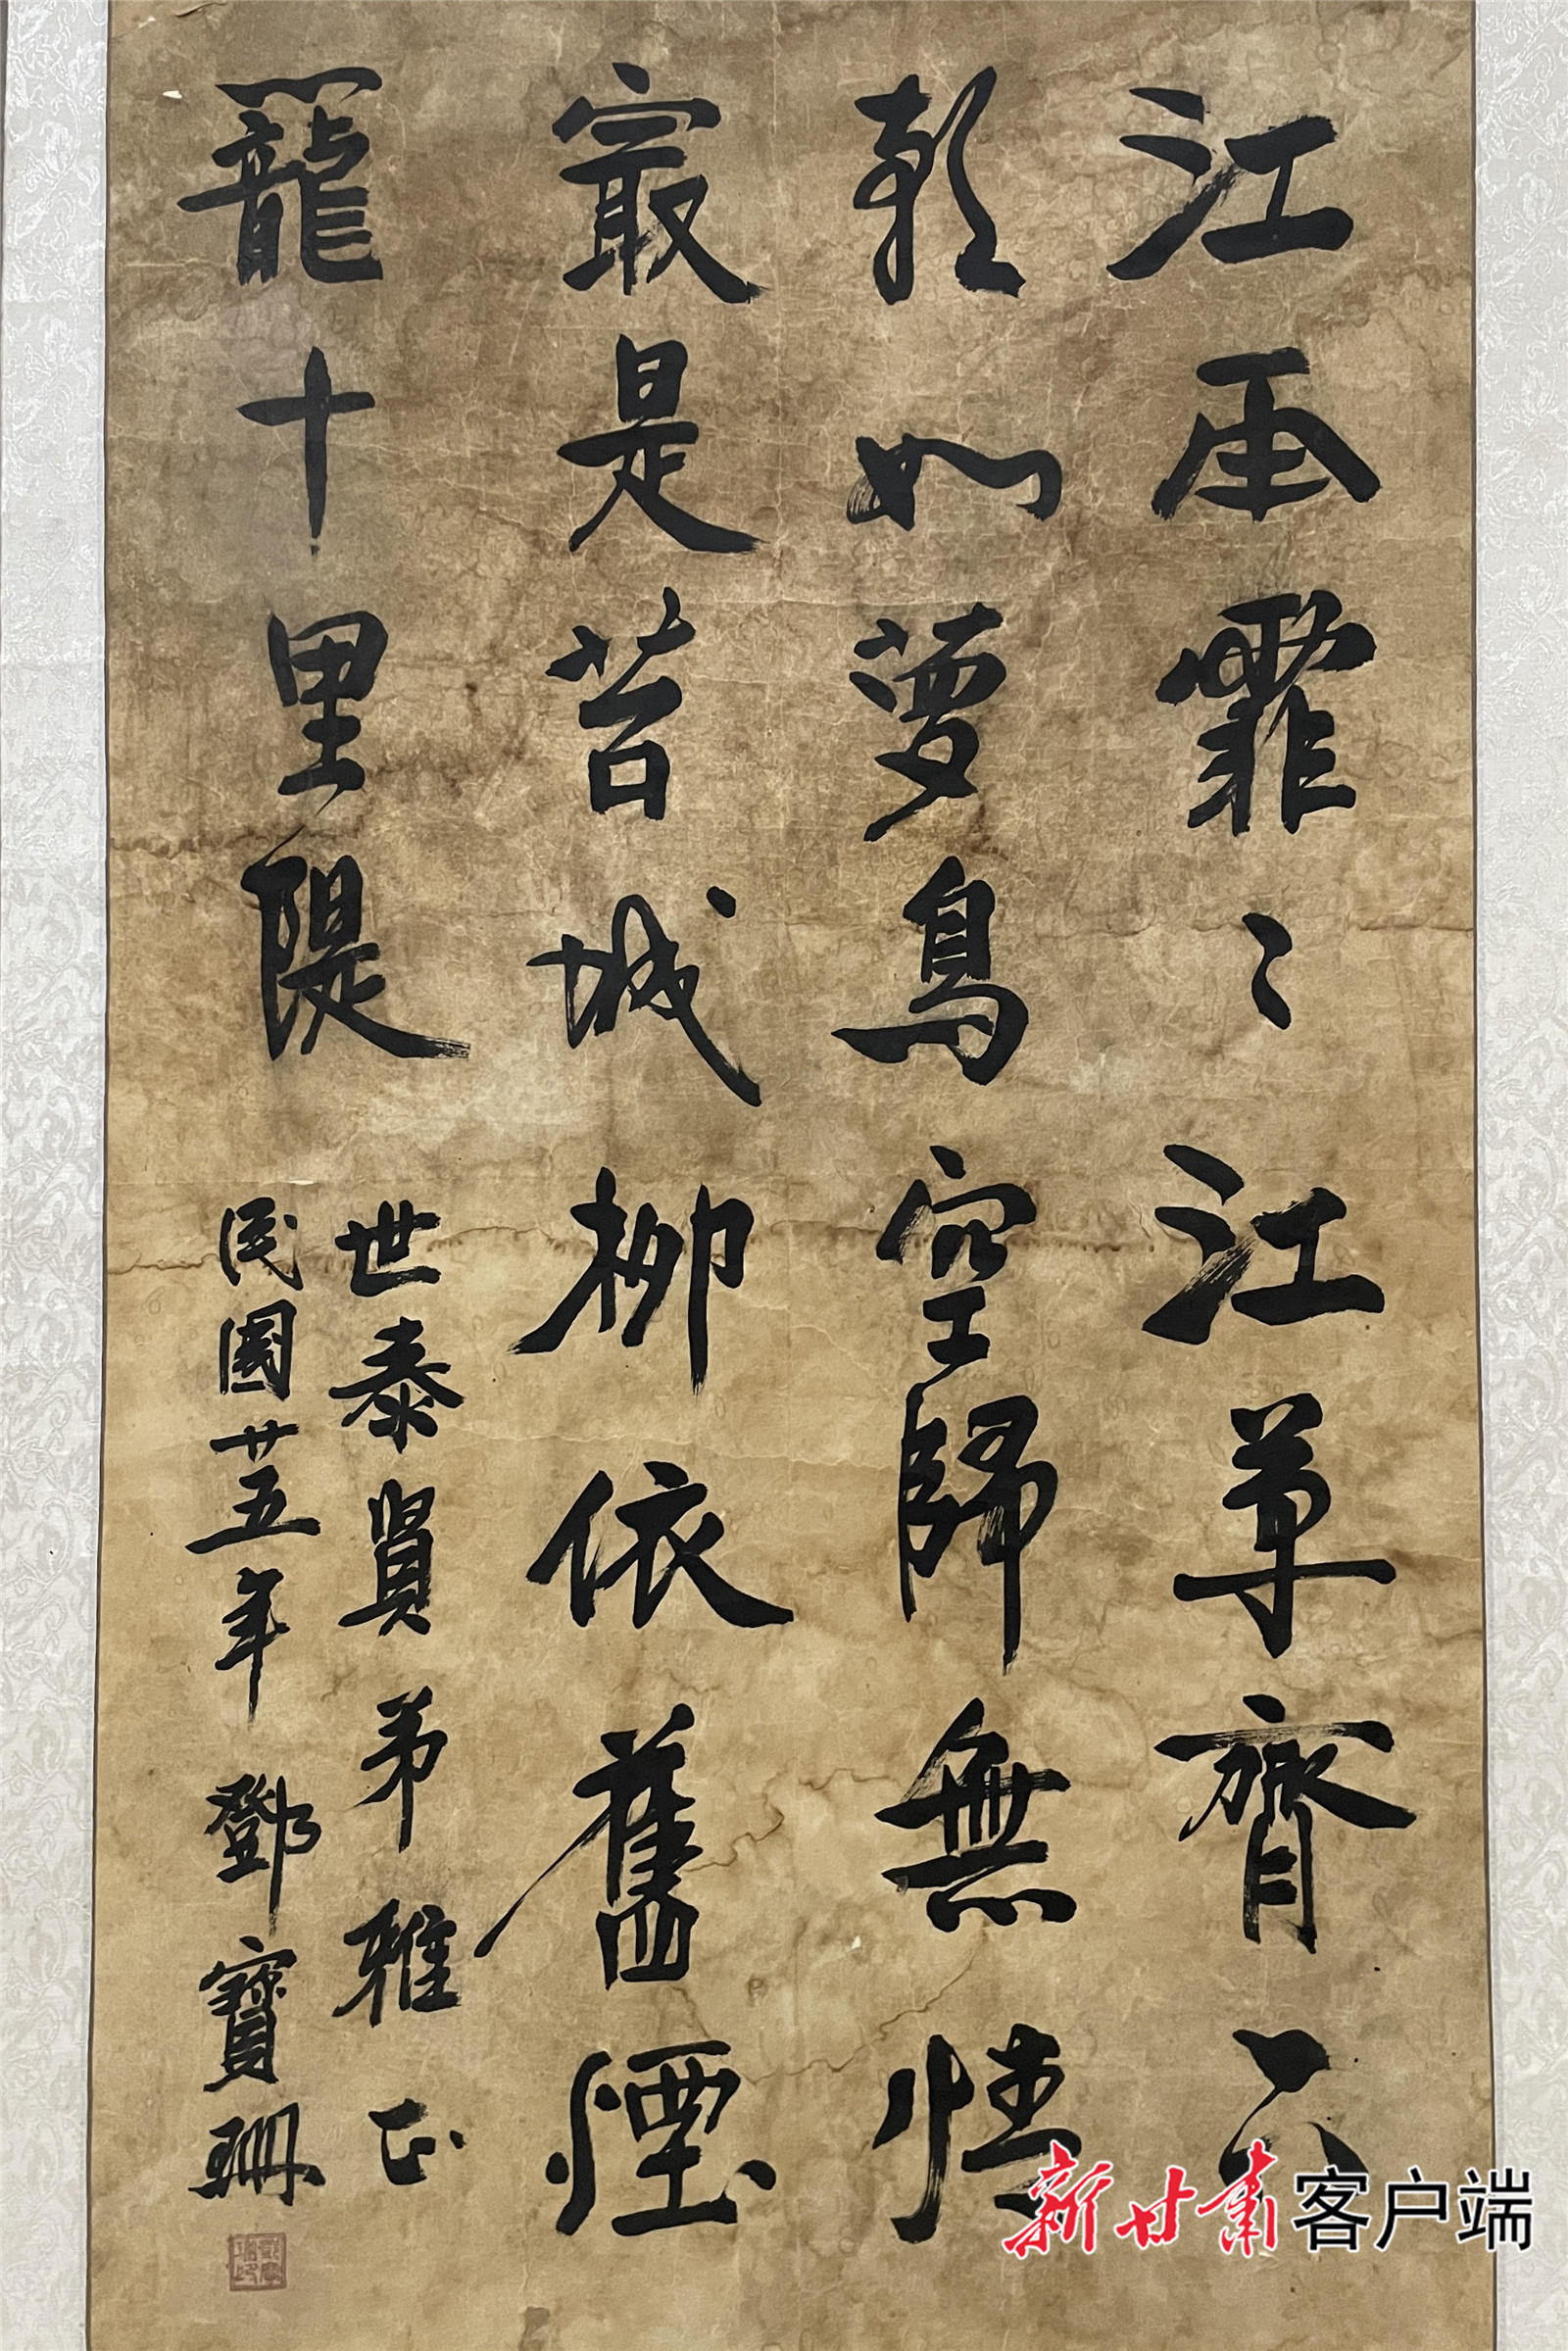 江雨霏〻江草齊六
朝如夢鳥空歸無情
㝡是苔城柳依舊煙
籠十里隄
世泰賢弟雅正
民國廿五年 鄧寶珊
新甘肃客户端